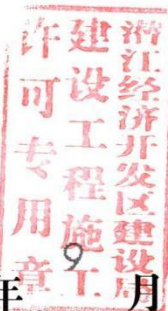 潜江经济开发区建设局
建设工程施工
许可专用章
年9月